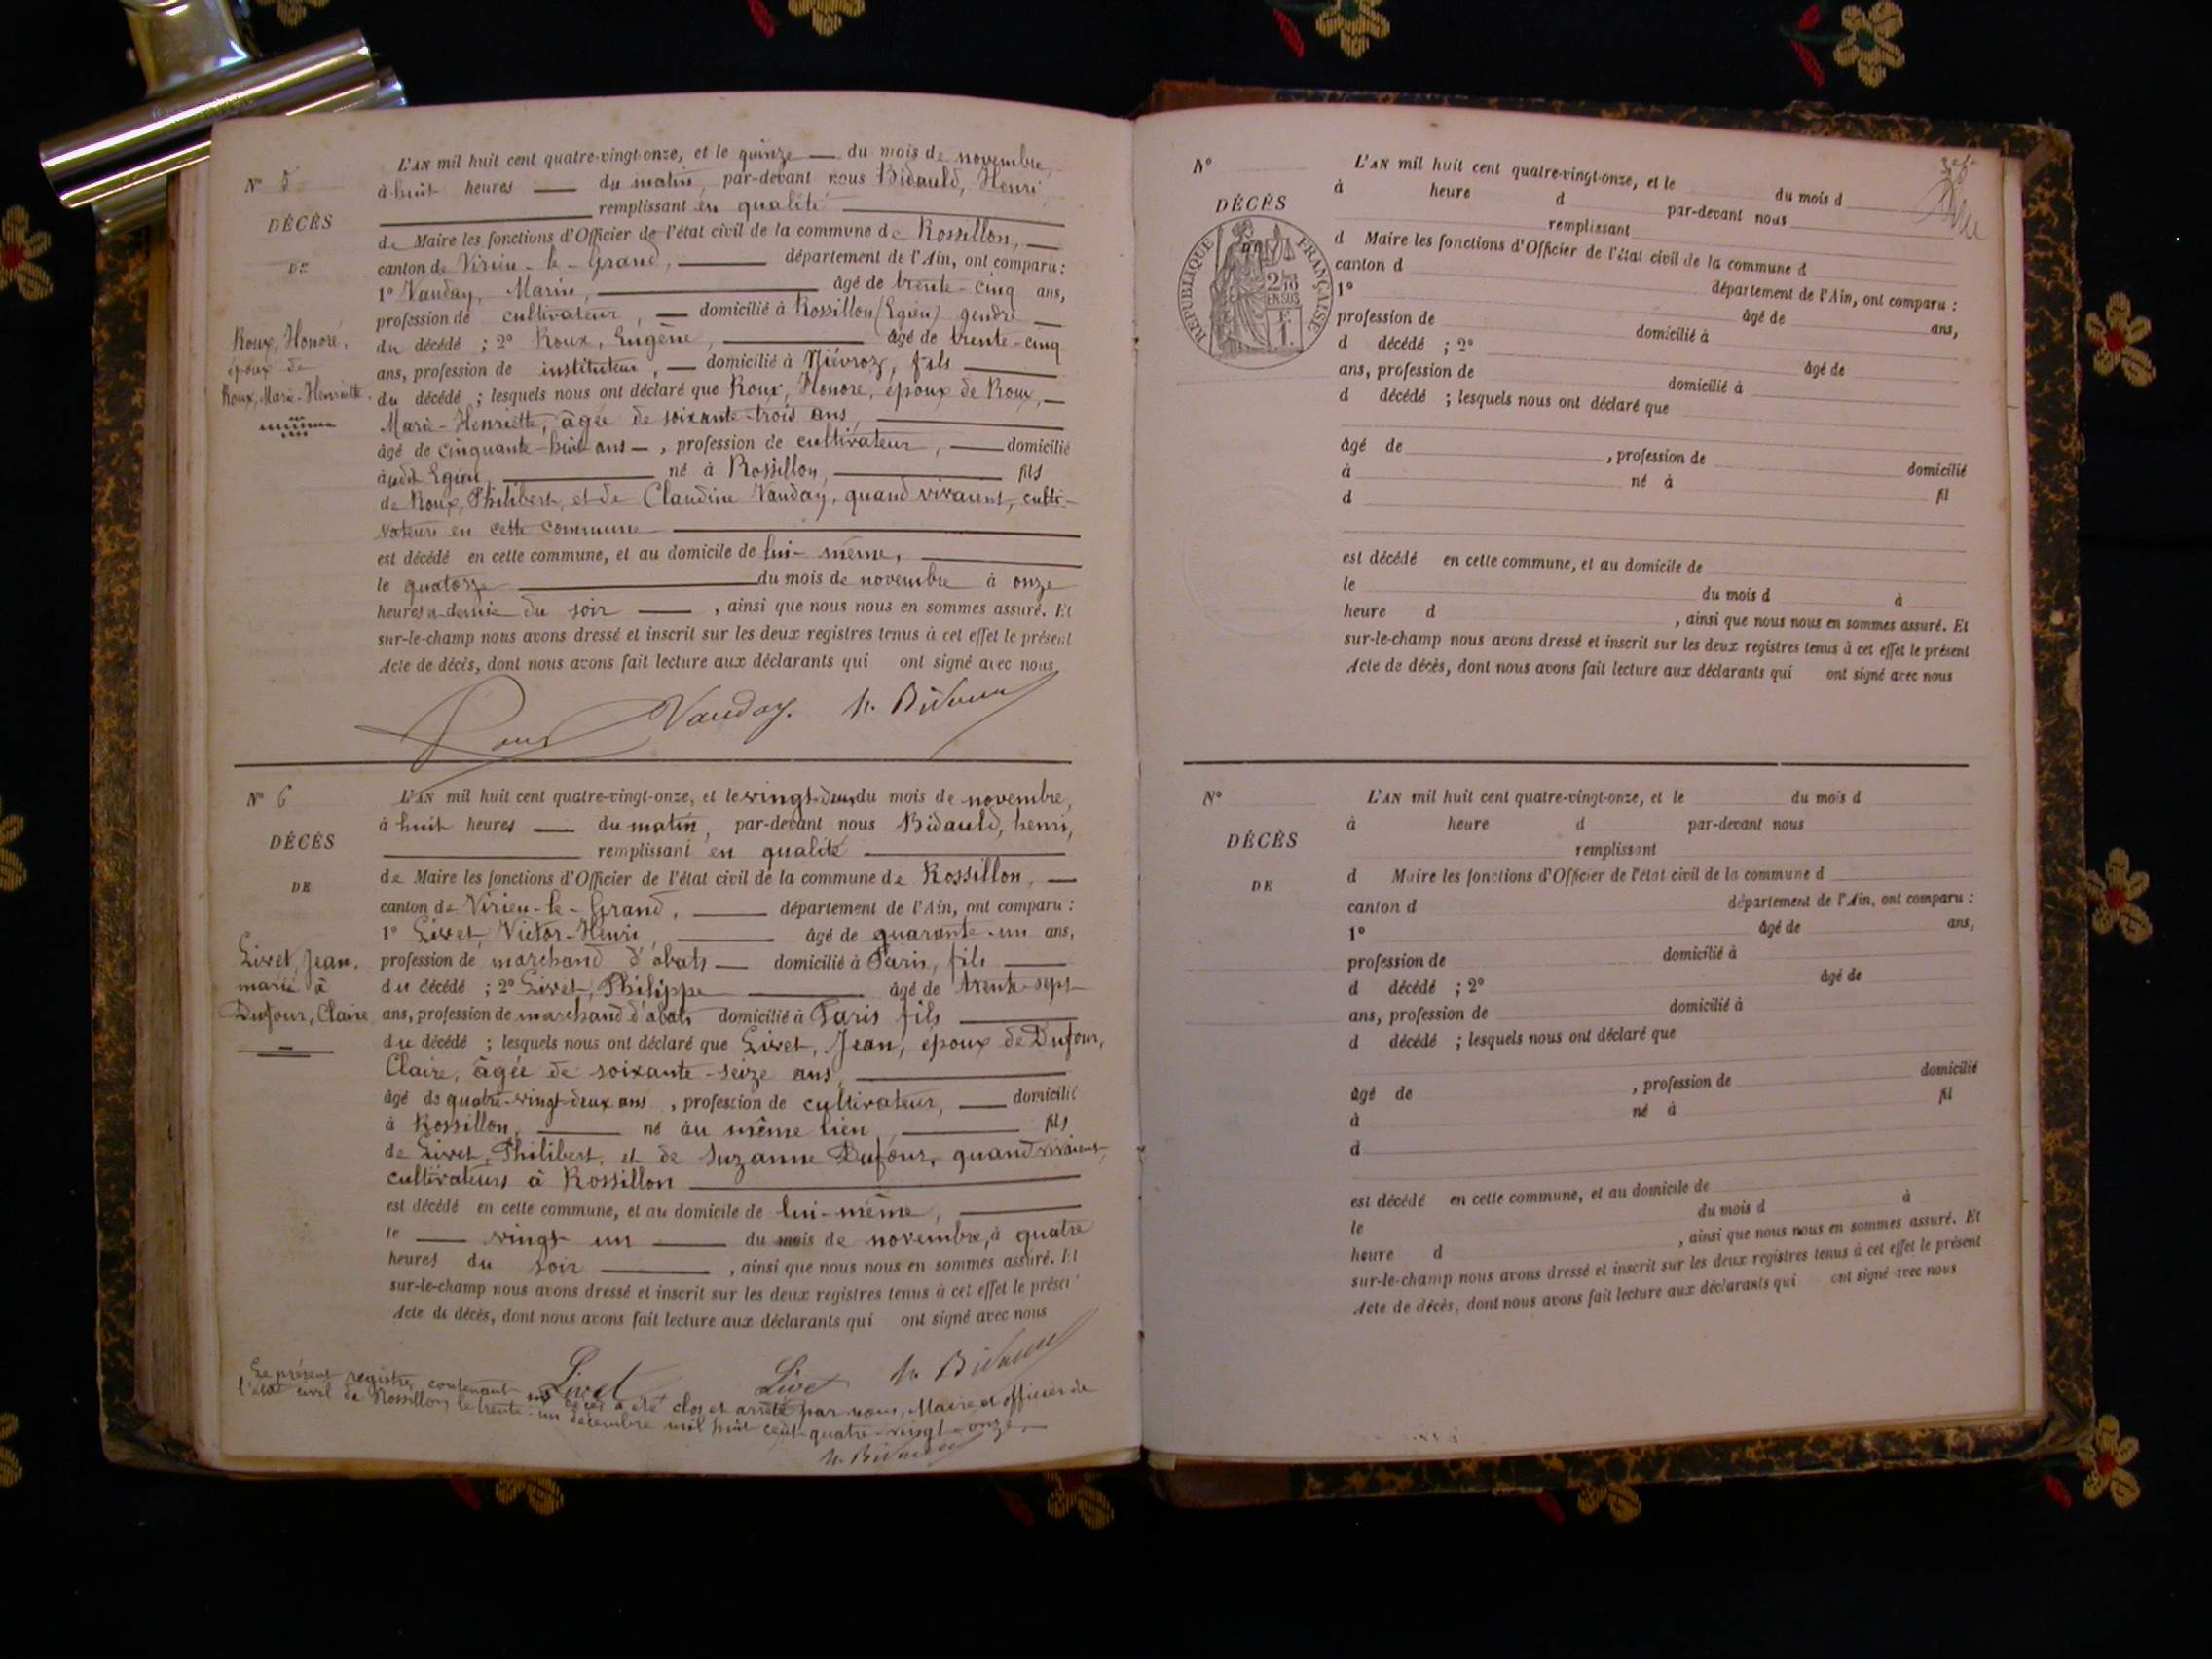 N° 5
DÉCÈS
DE
Roux, Honoré,
époux de
Roux, Marie-Henriette.
L'AN mil huit cent quatre-vingt-onze, et le quinze du mois de novembre,
à huit heures du matin, par-devant nous Bidauld, Henri
remplissant en qualité
de Maire les fonctions d'Officier de l'état civil de la commune de Rossillon,
canton de Virieu-le-Grand, département de l'Ain, ont comparu :
1° Vauday, Marin, âgé de trente-cinq ans,
profession de cultivateur, domicilié à Rossillon (Egieu) gendre
du décédé ; 2° Roux, Eugène, âgé de trente-cinq
ans, profession de instituteur, domicilié à Niévroz, fils
du décédé ; lesquels nous ont déclaré que Roux, Honoré, époux de Roux,
Marie-Henriette, âgée de soixante-trois ans,
âgé de cinquante-huit ans, profession de cultivateur, domicilié
audit Egieu, né à Rossillon, fils
de Roux, Philibert, et de Claudine Vauday, quand vivaient, culti-
vateurs en cette commune
est décédé en cette commune, et au domicile de lui-même,
le quatorze du mois de novembre à onze
heures et demie du soir, ainsi que nous nous en sommes assuré. Et
sur-le-champ nous avons dressé et inscrit sur les deux registres tenus à cet effet le présent
Acte de décès, dont nous avons fait lecture aux déclarants qui ont signé avec nous
Roux Vauday. h. Bidauld
N° 6
DÉCÈS
DE
Livet, Jean.
marié à
Dufour, Claire
L'AN mil huit cent quatre-vingt-onze, et le vingt-deux du mois de novembre,
à huit heures du matin, par-devant nous Bidauld, henri,
remplissant en qualité
de Maire les fonctions d'Officier de l'état civil de la commune de Rossillon,
canton de Virieu-le-Grand, département de l'Ain, ont comparu :
1° Livet, Victor-Henri, âgé de quarante-un ans,
profession de marchand d'abats domicilié à Paris, fils
du décédé ; 2° Livet, Philippe âgé de trente-sept
ans, profession de marchand d'abats domicilié à Paris fils
du décédé ; lesquels nous ont déclaré que Livet, Jean, époux de Dufour,
Claire, âgée de soixante-seize ans,
âgé de quatre-vingt-deux ans, profession de cultivateur, domicilié
à Rossillon, né au même lieu, fils
de Livet, Philibert, et de Suzanne Dufour, quand vivaient,
cultivateurs à Rossillon
est décédé en cette commune, et au domicile de lui-même,
le vingt un du mois de novembre, à quatre
heures du soir, ainsi que nous nous en sommes assuré. Et
sur-le-champ nous avons dressé et inscrit sur les deux registres tenus à cet effet le présent
Acte de décès, dont nous avons fait lecture aux déclarants qui ont signé avec nous
Livet Livet h. Bidauld
Le présent registre, contenant six décès a été clos et arrêté par nous, Maire et officier de
l'état civil de Rossillon, le trente-un décembre mil huit cent quatre-vingt-onze.
h. Bidauld
N°
DÉCÈS
RÉPUBLIQUE FRANÇAISE
2/10 EN SUS
F. 1.
L'AN mil huit cent quatre-vingt-onze, et le du mois d
à heure d par-devant nous
remplissant
d Maire les fonctions d'Officier de l'état civil de la commune d
canton d département de l'Ain, ont comparu :
1° âgé de ans,
profession de domicilié à
d décédé ; 2° âgé de
ans, profession de domicilié à
d décédé ; lesquels nous ont déclaré que
âgé de , profession de domicilié
à né à fil
d
est décédé en cette commune, et au domicile de
le du mois d à
heure d , ainsi que nous nous en sommes assuré. Et
sur-le-champ nous avons dressé et inscrit sur les deux registres tenus à cet effet le présent
Acte de décès, dont nous avons fait lecture aux déclarants qui ont signé avec nous
N°
DÉCÈS
DE
L'AN mil huit cent quatre-vingt-onze, et le du mois d
à heure d par-devant nous
remplissant
d Maire les fonctions d'Officier de l'état civil de la commune d
canton d département de l'Ain, ont comparu :
1° âgé de ans,
profession de domicilié à
d décédé ; 2° âgé de
ans, profession de domicilié à
d décédé ; lesquels nous ont déclaré que
âgé de , profession de domicilié
à né à fil
d
est décédé en cette commune, et au domicile de
le du mois d à
heure d , ainsi que nous nous en sommes assuré. Et
sur-le-champ nous avons dressé et inscrit sur les deux registres tenus à cet effet le présent
Acte de décès, dont nous avons fait lecture aux déclarants qui ont signé avec nous